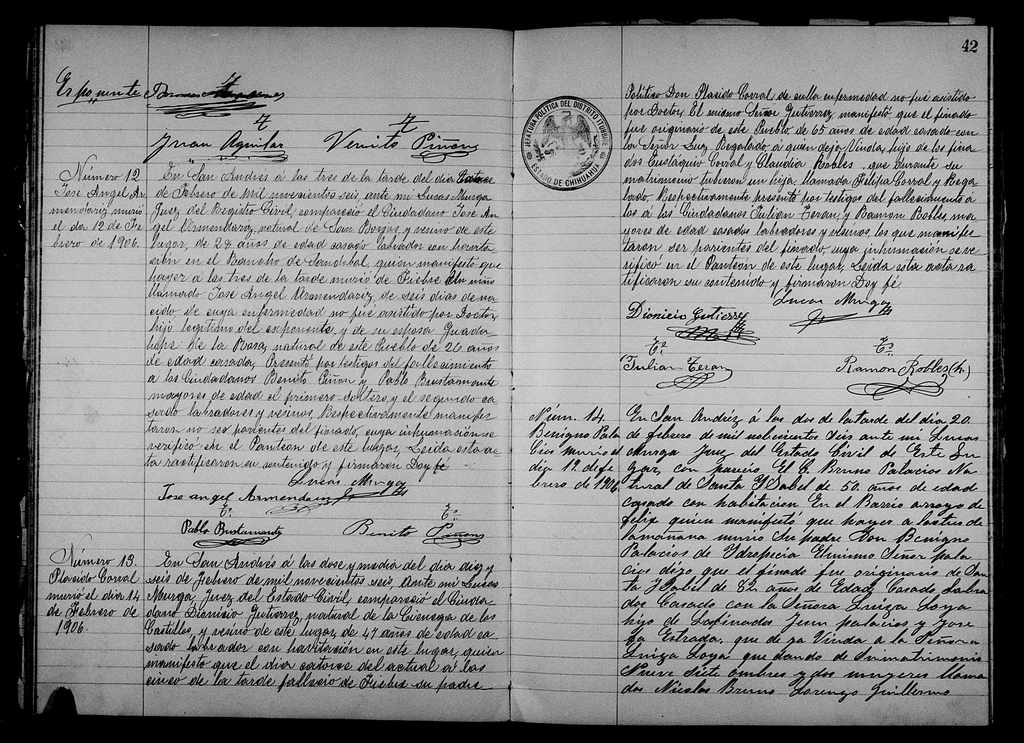 Exponente
Juan Aguilar Venito Piñon
Número 12
José Angel Ar
mendariz murió
el día 12 de Fe
brero de 1906.
En San Andrés á las tres de la tarde del día
de Febrero de mil novecientos seis, ante mí Lucas Murga
Juez del Registro Civil, compareció el Ciudadano José An
gel Armendariz, natural de San Borja, y vecino de este
lugar, de 28 años de edad casado labrador con habita
ción en el Rancho de Sandobal, quien manifestó que
hayer á las tres de la tarde murió de Fiebre un niño
llamado José Angel Armendariz, de seis días de na
cido, de cuya enfermedad no fué asistido por Doctor,
hijo legítimo del exponente, y de su esposa Guada
lupe De la Rosa, natural de este Pueblo de 20 años
de edad casada, Presentó por testigos del fallecimiento
a los Ciudadanos Benito Piñon y Pablo Bustamante
mayores de edad el primero soltero, y el segundo ca
sado labradores y vecinos, Respectivamente manifes
taron no ser parientes del finado, cuya inhumación se
verificó en el Panteón de este lugar, Leida esta ac
ta ractificaron su contenido y firmaron Doy fé
Lucas Murga
Jose angel Armendariz
To. To.
Pablo Bustamante Benito Piñon
Número 13.
Plasido Corral
murió el día 14
de Febrero de
1906.
En San Andrés á las doce y media del día diez y
seis de Febrero de mil novecientos seis, Ante mí Lucas
Murga, Juez del Estado Civil, compareció el Ciuda
dano Dionisio Gutierrez, natural de la Cienega de los
Castillos, y vecino de este lugar, de 47 años de edad ca
sado labrador con havitación en este lugar, quien
manifestó que el día catorce del actual á las
cinco de la tarde falleció de Fiebre su padre
42
JEFATURA POLITICA DEL DISTRITO ITURBIDE
ESTADO DE CHIHUAHUA
Político Don Plasido Corral, de culla enfermedad no fué asistido
por Doctor, El mismo Señor Gutierrez, manifestó que el finado
fué originario de este Pueblo de 65 años de edad casado con
la Señora Luz Regalado, á quien deja Viuda, hijo de los fina
dos Eustaquio Corral y Claudia Robles, que durante su
matrimonio tubieron un hija llamada Filipa Corral y Rega
lado, Respectivamente presentó por testigos del fallecimiento a
los á los Ciudadanos Julian Teran, y Ramón Robles, ma
yores de edad casados labradores y vecinos los que manifes
taron ser parientes del finado, cuya inhumación se ve
rificó en el Panteón de este lugar, Leida esta acta ra
tificaron su contenido y firmaron Doy fé
Lucas Murga
Dionicio Gutierrez
To. To.
Julian Teran Ramón Robles (h)
Núm. 14.
Benigno Pala
cios murió el
día 19 de fe
brero de 1906
En San Andréz á las dos de la tarde del día 20
de febrero de mil nobecientos seis ante mi Lucas
Murga Juez del Estado Civil de Este Lu
gar, con pareció El C. Bruno Palacios Na
tural de Santa Ysabel de 50 años de edad
casado con habitación En el Barrio arroyo de
felix quien manifestó que hayer a las tres de
la mañana murió su padre Don Benigno
Palacios de Ydropecia El mismo Señor pala
cios dijo que el finado fue originario de San
ta Ysabel de 82 años de Edad Casado Labra
dor Casado con la Señora Luiza Loya
hijo de Lafinados Juan palacios y Jose
fa Estrada, que de ja Viuda a la Señora
Luiza Loya, que dando de Su matrimonio
Nueve Siete ombres y dos mugeres llama
dos Nicolas Bruno Lorenzo Guillermo